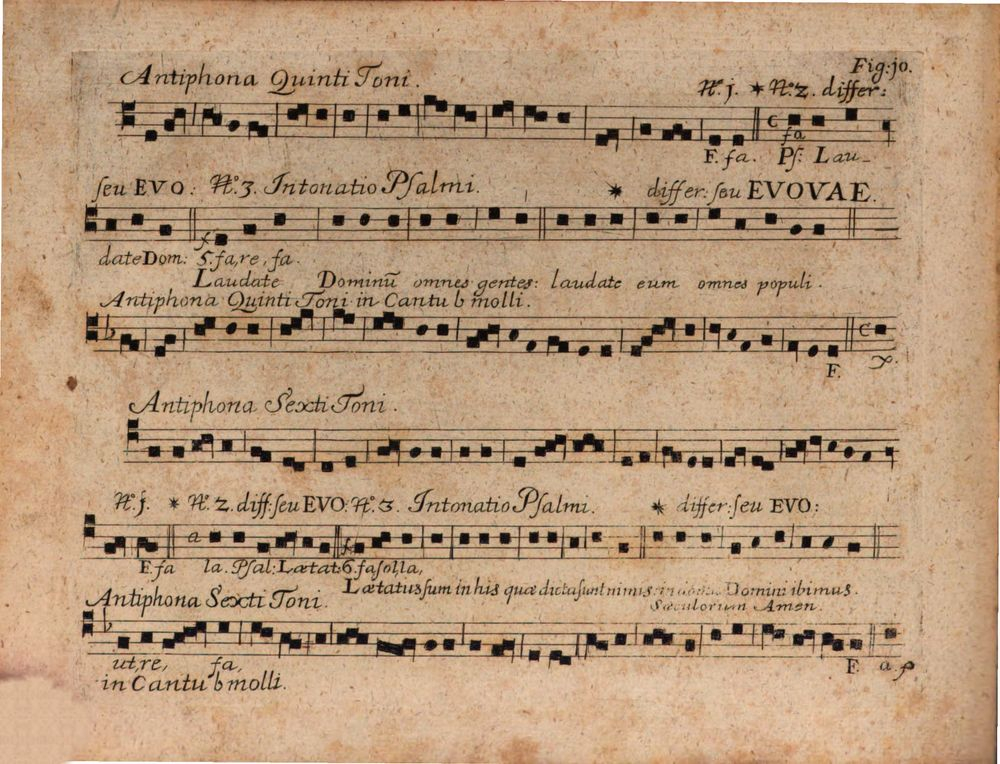 Fig: 10.
Antiphona Quinti Toni. No. 1. * No. 2. differ:
fa
F. fa. Ps: Lau-
seu EVO: No. 3. Intonatio Psalmi. * differ: seu EVOVAE.
date Dom: 5. fa, re, fa.
Laudate Dominū omnes gentes: laudate eum omnes populi.
Antiphona Quinti Toni in Cantu b molli.
C
F.
Antiphona Sexti Toni.
No. 1. * No. 2. diff: seu EVO: No. 3. Intonatio Psalmi. * differ: seu EVO:
a
F. fa la. Psal: Lætat: 6. fa sol la,
Lætatus sum in his quæ dicta sunt mihi: in domū Domini ibimus.
Sæculorum Amen.
Antiphona Sexti Toni.
ut, re, fa, F a.
in Cantu b molli.